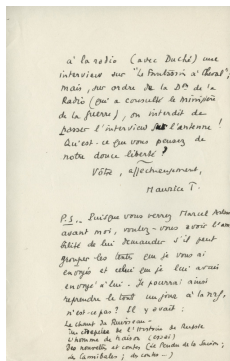 à la radio (avec Duché) une
interview sur "Le Fantassin à Cheval",
mais, sur ordre de la Don de la
Radio (qui a consulté le ministère
de la guerre), on interdit de
passer l'interview sur l'antenne !
Qu'est-ce que vous pensez de
notre douce liberté ?
Vôtre, affectueusement,
Maurice T.
P.S. Puisque vous verrez Marcel
avant moi, voulez-vous avoir l'ama
bilité de lui demander s'il peut
grouper les textes que je vous ai
envoyés et celui que je lui avais
envoyé à lui. Je pourrai ainsi
reprendre le tout un jour à la nrf,
n'est-ce pas ? Il y avait :
Le chant du
L'homme de raison (essai)
Des nouvelles et contes (Le Pendu de la
contes